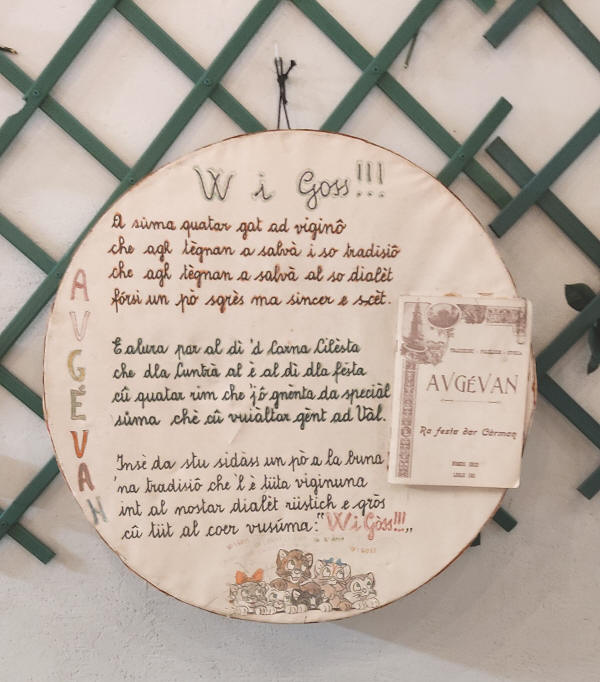 W i Goss!!!
A sùma quatar gat ad viginô
che agh tègnan a salvà i so tradisiô
che agh tègnan a salvà al so dialèt
fórsi un pò sgrès ma sincer e s-cèt.
E alura par al dì 'd Carna Cilèsta
che dla Cuntrà al è al dì dla fèsta
cû quatar rim che 'jô gnènta da speciàl
sùma chè cû vuiàltar gènt ad Vàl.
Insè da stu sidàss un pò a la buna
'na tradisiô che 'l è tüta viginuna
int al nostar dialèt rüstich e gròs
cû tüt al coer vusúma: "W i Gòss!!!„
AVGÉVAN
TRADIZIONI - FOLCLORE - STORIA
AVGÉVAN
Ra festa dar Cärman